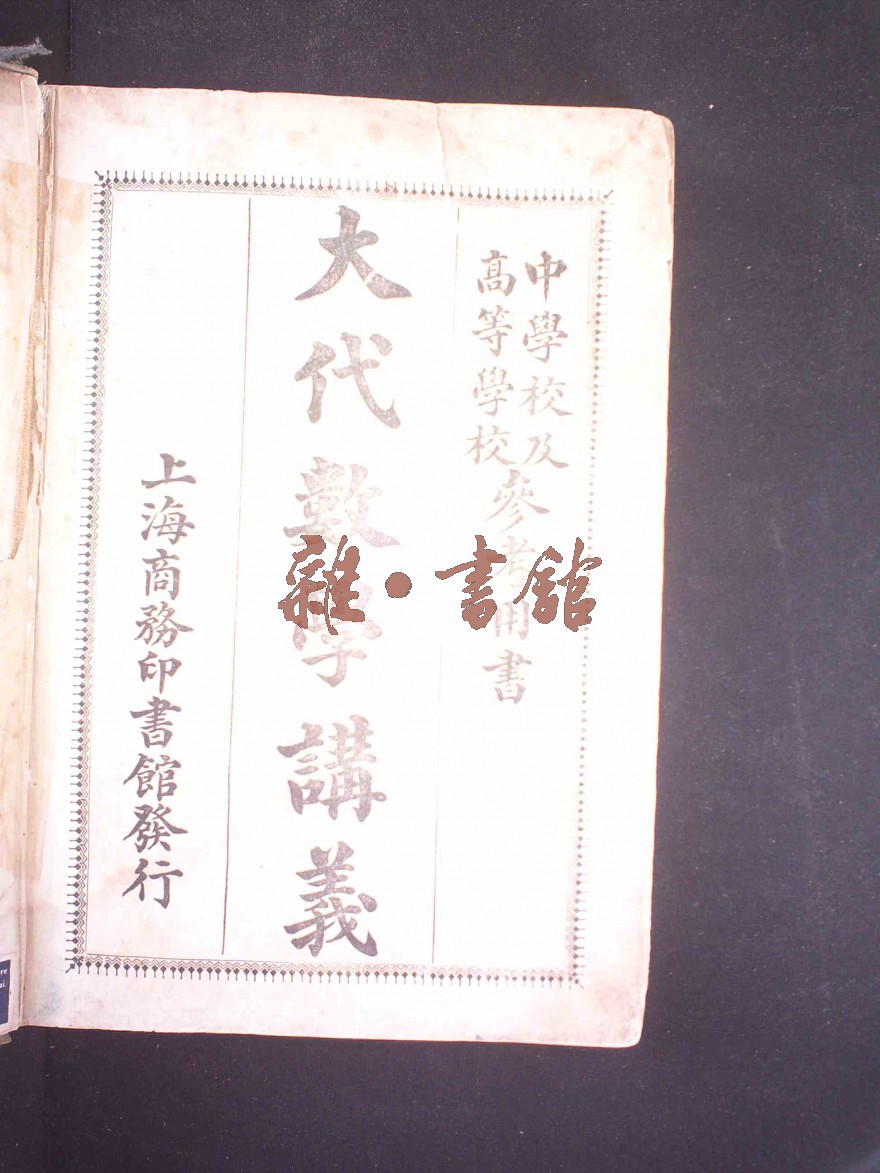 中學校及
高等學校
參考用書
大代數學講義
上海商務印書館發行
雜·書館